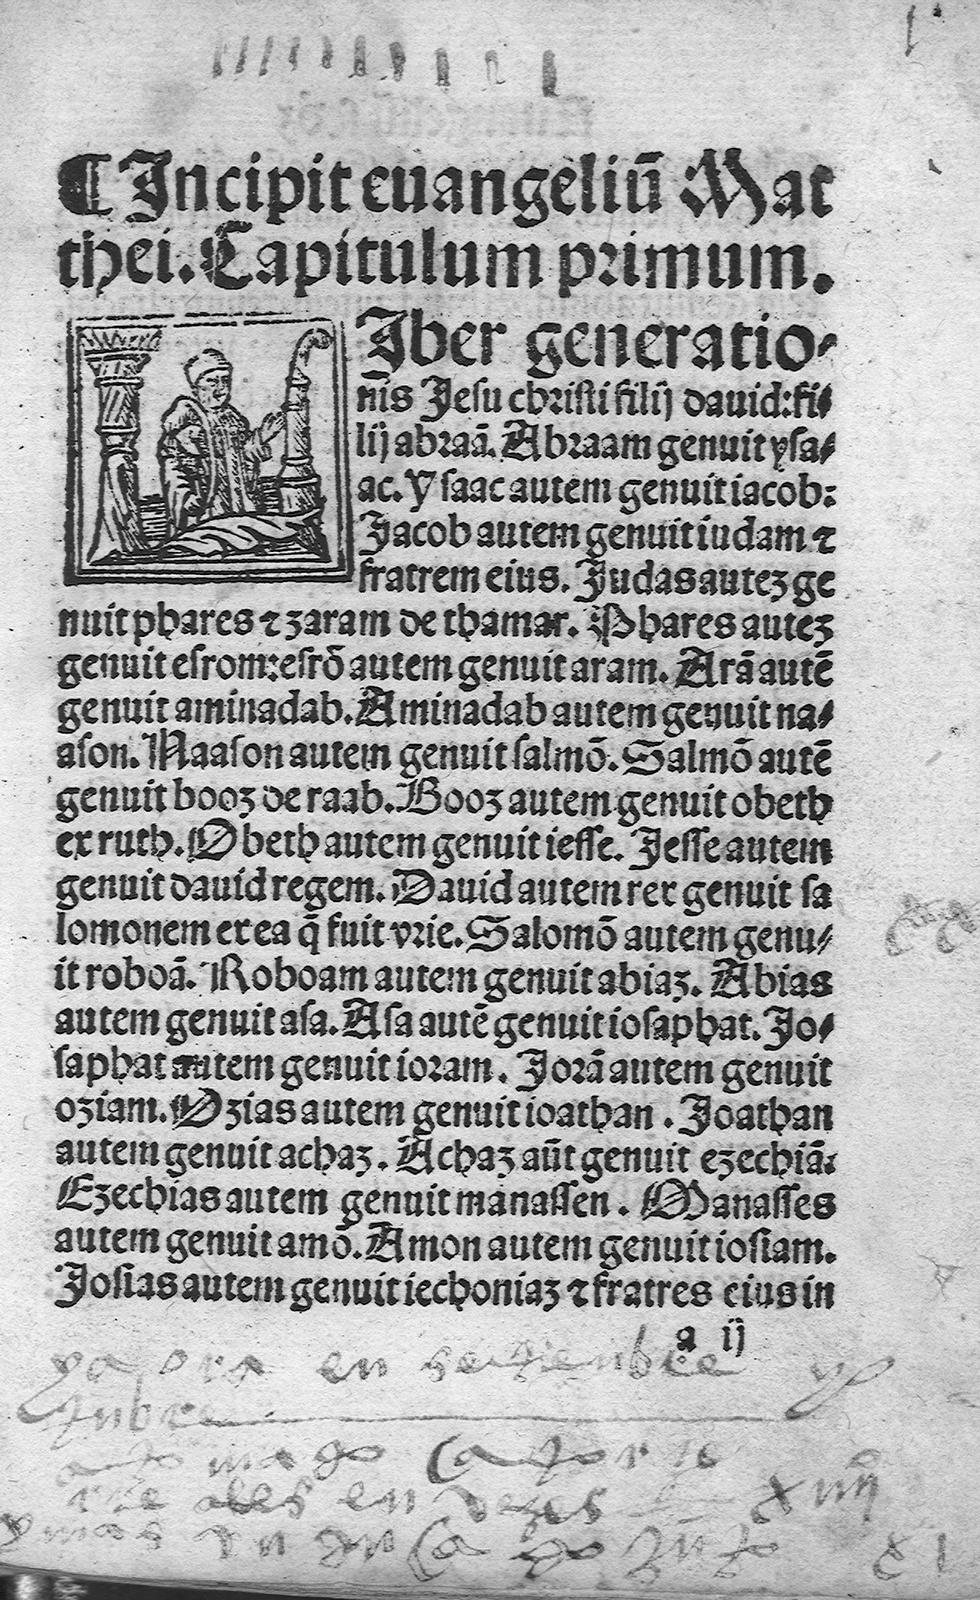 ¶ Incipit euangeliū Mat
thei. Capitulum primum.
Iber generatio-
nis Jesu christi filij dauid: fi-
lij abraā. Abraam genuit ysa-
ac. Ysaac autem genuit iacob:
Jacob autem genuit iudam ⁊
fratrem eius. Judas autez ge
nuit phares ⁊ zaram de thamar. Phares autez
genuit esrom: esrō autem genuit aram. Arā autē
genuit aminadab. Aminadab autem genuit na-
ason. Naason autem genuit salmō. Salmō autē
genuit booz de raab. Booz autem genuit obeth
ex ruth. Obeth autem genuit iesse. Jesse autem
genuit dauid regem. Dauid autem rex genuit sa
lomonem ex ea q̄ fuit vrie. Salomō autem genu-
it roboā. Roboam autem genuit abiaz. Abias
autem genuit asa. Asa autē genuit iosaphat. Jo-
saphat autem genuit ioram. Jorā autem genuit
oziam. Ozias autem genuit ioathan. Joathan
autem genuit achaz. Achaz aūt genuit ezechiā:
Ezechias autem genuit manassen. Manasses
autem genuit amō. Amon autem genuit iosiam.
Josias autem genuit iechoniaz ⁊ fratres eius in
a ij
en
en